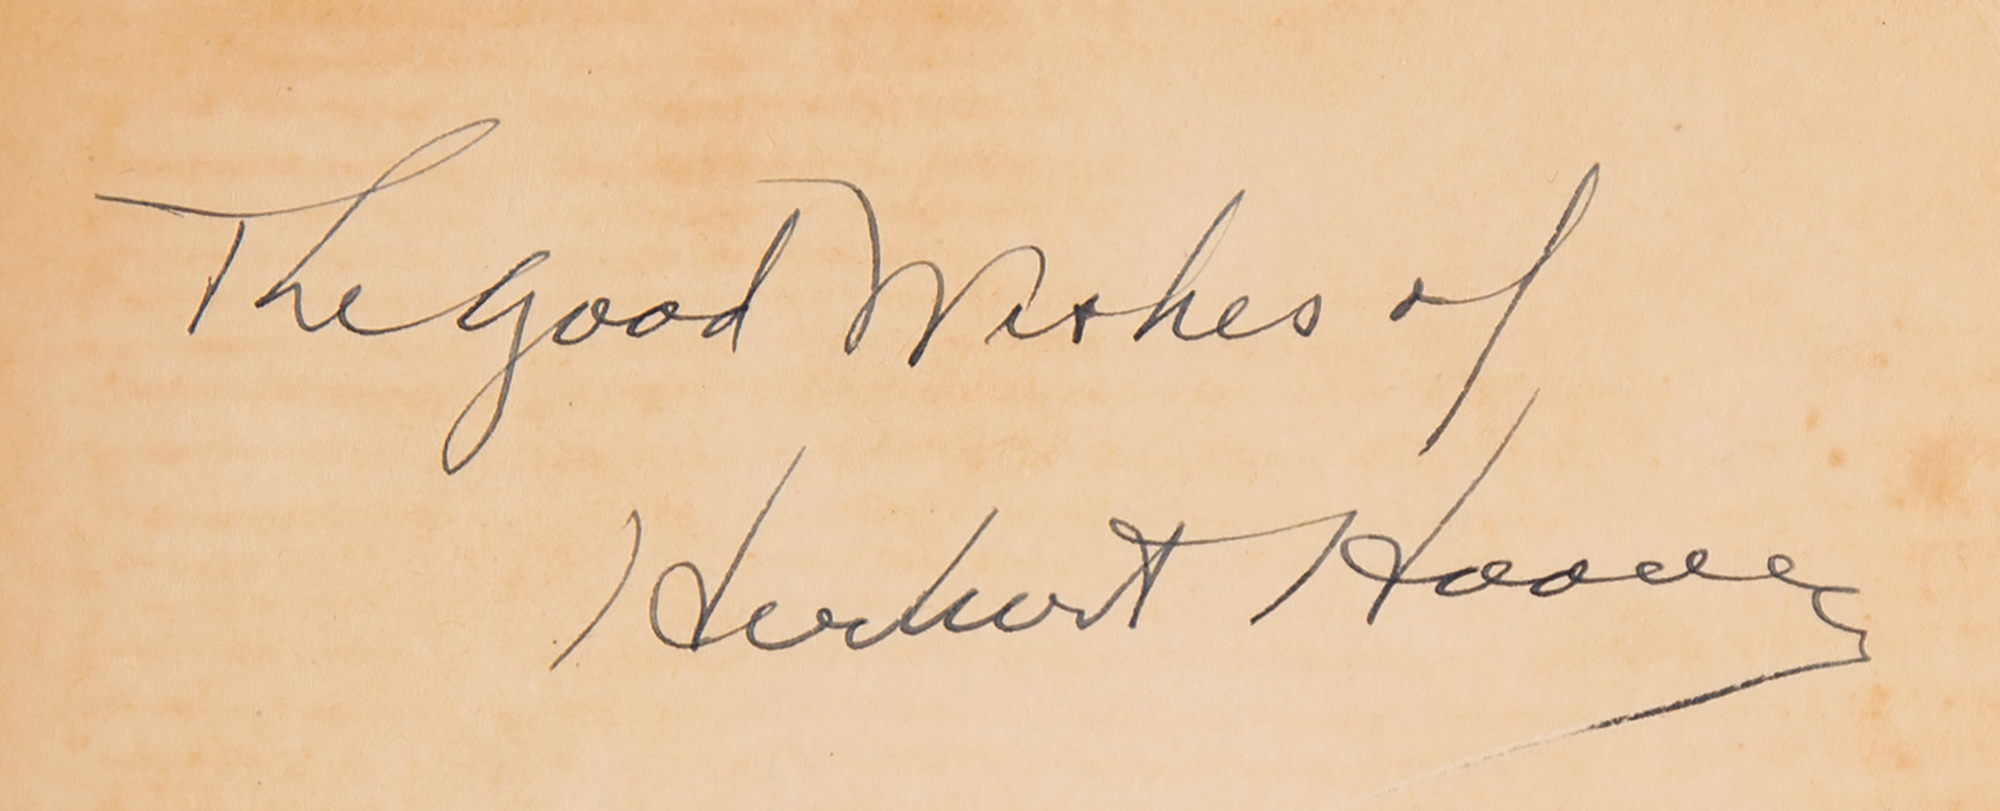 The good Wishes of
Herbert Hoover